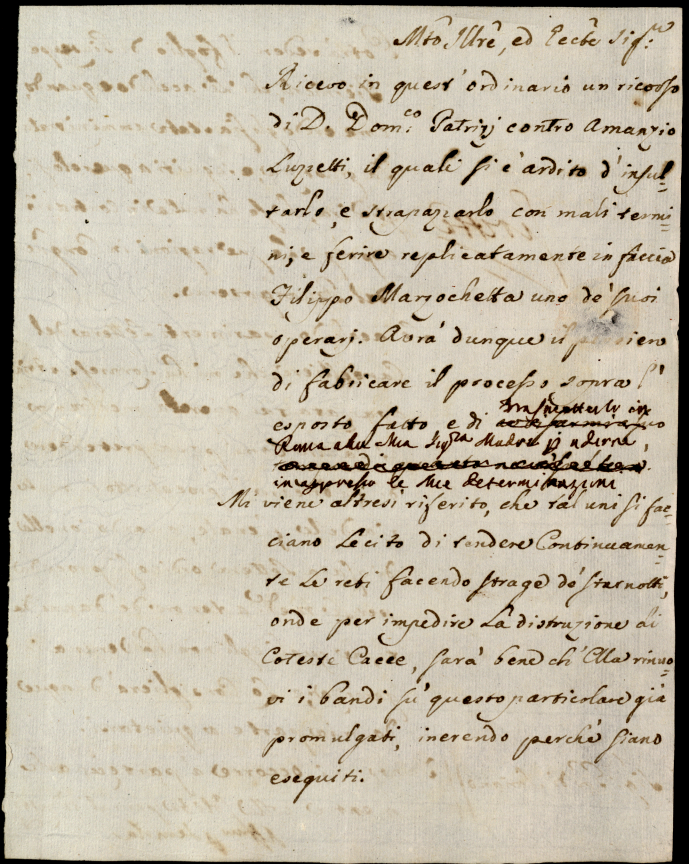 Mto Illre, ed Eccte Sigre
Ricevo in quest' ordinario un ricorso
di D. Domco Patrizj contro Amanzio
Luzzetti, il quali si è ardito d' insul=
tarlo, e strapazzarlo con mali termi=
ni, e ferire replicatamente in faccia
Filippo Marzochetta uno de' suoi
operarj. Avrà dunque il
di fabricare il processo sopra l'
esposto fatto e di trasmetterlo in
Roma alla mia Sigra Madre p udirne,
in appresso le sue determinazioni
Mi viene altresì riferito, che taluni si fac=
ciano lecito di tendere Continuamen=
te le reti facendo strage de' starnotti,
onde per impedire La distruzione di
Coteste Cacce, sarà bene ch' Ella rinuo=
vi i bandi su' questo particolare già
promulgati, inerendo perchè siano
eseguiti.